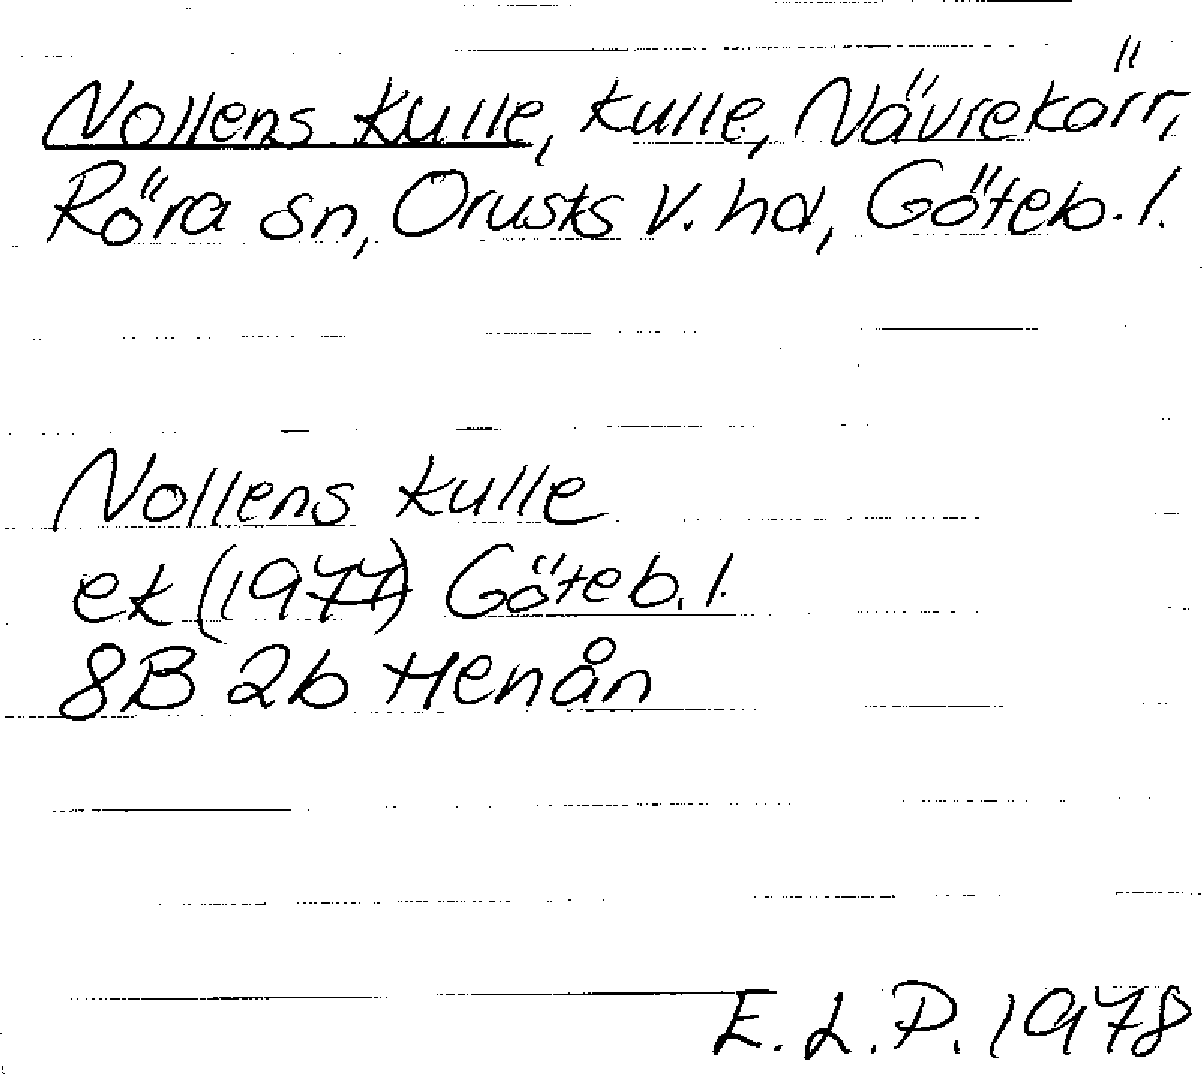 Nollens kulle, kulle, Nävrekärr,
Röra sn, Orusts V. hd, Göteb. l.
Nollens kulle
ek (1977) Göteb. l.
8B 2b Henån
E. L. P. 1978